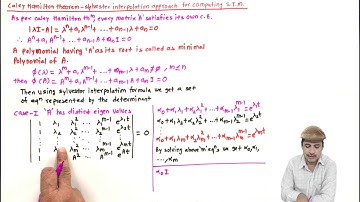 Caley Hamilton theorem - sylvester interpolation approach for computing S.T.M.
As per caley Hamilton thm, every matrix A satisfies its own C.E.
|λI-A| = λⁿ+a₁λⁿ⁻¹+ ... +aₙ₋₁λ+aₙ=0
∴ Aⁿ+a₁Aⁿ⁻¹+ ... +aₙ₋₁A+aₙI=0
A polynomial having 'A' as its root is called as minimal
Polynomial of A.
ϕ(λ) = λᵐ+a₁λᵐ⁻¹+ ... +aₘ₋₁λ+aₘ
then ϕ(A) = Aᵐ+a₁Aᵐ⁻¹+ ... +aₘ₋₁A+aₘI=0
Then using sylvester interpolation formula, we get a set
of eqⁿ represented by the determinant
Case-I 'A' has distinct eigen values
1 λ₁ λ₁² ... λ₁ᵐ⁻¹ e^λ₁t
1 λ₂ λ₂² ... λ₂ᵐ⁻¹ e^λ₂t
= 0
λₘ λₘ² ... λₘᵐ⁻¹ e^λₘt
A A² ... Aᵐ⁻¹ e^At
α₀+α₁λ₁+α₂λ₁²+ ...
α₀+α₁λ₂+α₂λ₂²+ ...
α₀+α₁λₘ+α₂λₘ²+ ... +αₘ₋₁λₘᵐ⁻¹=e^λₘt
By solving above 'm' eqⁿs we get α₀,α₁,
..., αₘ
α₀I